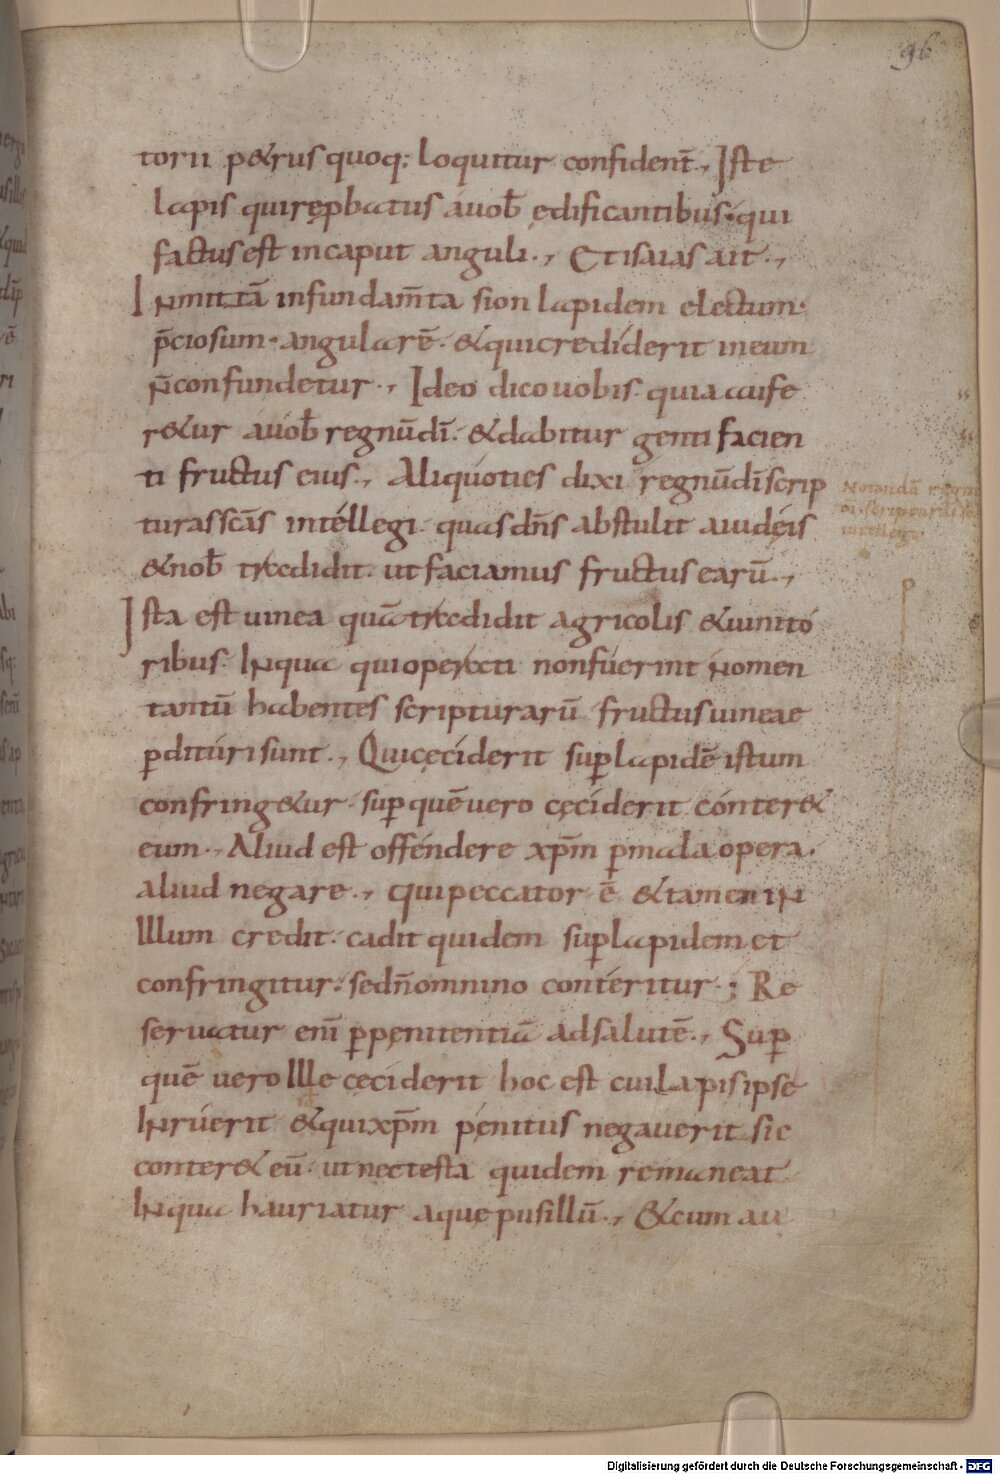 96
torii p&rus quoq; loquitur confident̄., Iste
lapis qui rępbatus auob̄ ędificantibus. qui
factus est in caput anguli., Et isaias ait.,
Inmittā in fundam̄ta sion lapidem electum.
p̄ciosum. angularē. & qui crediderit in eum
n̄ confundetur., Ideo dico uobis. quia aufe
r&ur auob̄ regnū dī. & dabitur genti facien
ti fructus eius., Aliquoties dixi regnū dī scrip
turas scās intéllegi. quas dn̄s abstulit a iudęis
& nob̄ tradidit. ut faciamus fructus earū.,
Ista est uinea quā tradidit agricolis & uinitó
ribus. In qua qui operati non fúerint nomen
tantū habentes scripturarū fructus uineae
p̱dituri sunt., Qui cęciderit sup̱ lapidē istum
confring&ur. sup̱ quē vero cęciderit cónter&
eum., Aliud est offéndere xp̄m p̱ mala opera.
aliud negare., qui peccator ē & tamen in
Illum credit. cadit quidem sup̱ lapidem et
confringitur. sed n̄ omnino contéritur.; Re
seruatur enī p̱ pęnitentiā ad salutē., Sup̱
quē uero Ille cęciderit hoc est cui lapis ipse
Inrúerit & qui xp̄m pęnitus negauerit sic
conter& eū. ut nec testa quidem remaneat
In qua hauriatur aquę pusillū., & cum au
Notandū
scripturas
intellegi
Digitalisierung gefördert durch die Deutsche Forschungsgemeinschaft - DFG